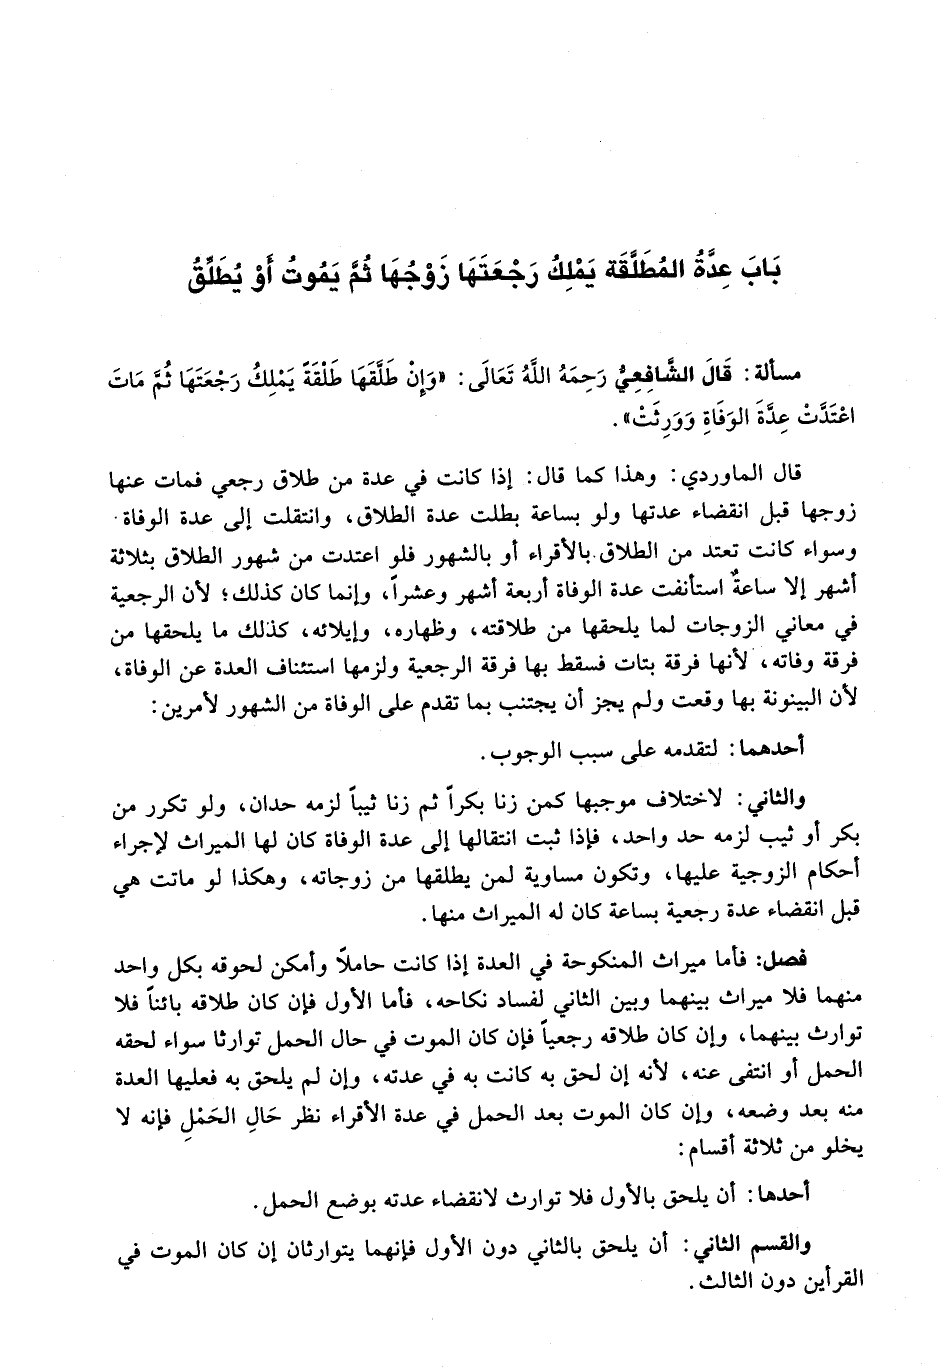 بَابَ عِدَّةُ المُطَلَّقَة يَمْلِكُ رَجْعَتَهَا زَوْجُهَا ثُمَّ يَمُوتُ أَوْ يُطَلِّقُ
مسألة: قَالَ الشَّافِعِيُّ رَحِمَهُ اللَّهُ تَعَالَى: «وَإِنْ طَلَّقَهَا طَلْقَةً يَمْلِكُ رَجْعَتَهَا ثُمَّ مَاتَ
اعْتَدَّتْ عِدَّةَ الوَفَاةِ وَوَرِثَتْ».
قال الماوردي: وهذا كما قال: إذا كانت في عدة من طلاق رجعي فمات عنها
زوجها قبل انقضاء عدتها ولو بساعة بطلت عدة الطلاق، وانتقلت إلى عدة الوفاة.
وسواء كانت تعتد من الطلاق بالأقراء أو بالشهور فلو اعتدت من شهور الطلاق بثلاثة
أشهر إلا ساعةٌ استأنفت عدة الوفاة أربعة أشهر وعشراً، وإنما كان كذلك؛ لأن الرجعية
في معاني الزوجات لما يلحقها من طلاقته، وظهاره، وإيلائه، كذلك ما يلحقها من
فرقة وفاته، لأنها فرقة بتات فسقط بها فرقة الرجعية ولزمها استئناف العدة عن الوفاة،
لأن البينونة بها وقعت ولم يجز أن يجتنب بما تقدم على الوفاة من الشهور لأمرين:
أحدهما: لتقدمه على سبب الوجوب.
والثاني: لاختلاف موجبها كمن زنا بكراً ثم زنا ثيباً لزمه حدان، ولو تكرر من
بكر أو ثيب لزمه حد واحد، فإذا ثبت انتقالها إلى عدة الوفاة كان لها الميراث لإجراء
أحكام الزوجية عليها، وتكون مساوية لمن يطلقها من زوجاته، وهكذا لو ماتت هي
قبل انقضاء عدة رجعية بساعة كان له الميراث منها.
فصل: فأما ميراث المنكوحة في العدة إذا كانت حاملاً وأمكن لحوقه بكل واحد
منهما فلا ميراث بينهما وبين الثاني لفساد نكاحه، فأما الأول فإن كان طلاقه بائناً فلا
توارث بينهما، وإن كان طلاقه رجعياً فإن كان الموت في حال الحمل توارثا سواء لحقه
الحمل أو انتفى عنه، لأنه إن لحق به كانت به في عدته، وإن لم يلحق به فعليها العدة
منه بعد وضعه، وإن كان الموت بعد الحمل في عدة الأقراء نظر حَالِ الحَمْلِ فإنه لا
يخلو من ثلاثة أقسام:
أحدها: أن يلحق بالأول فلا توارث لانقضاء عدته بوضع الحمل.
والقسم الثاني: أن يلحق بالثاني دون الأول فإنهما يتوارثان إن كان الموت في
القرأين دون الثالث.